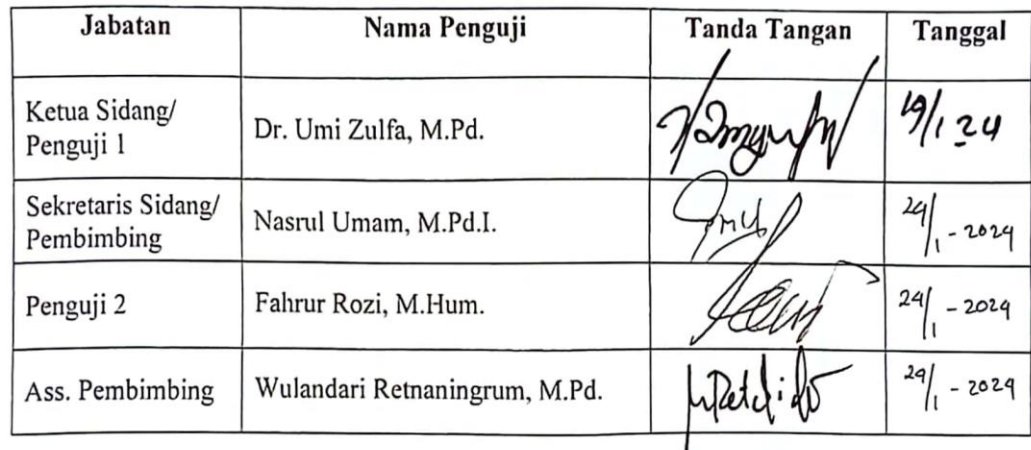 Jabatan Nama Penguji Tanda Tangan Tanggal
Ketua Sidang/
Penguji 1 Dr. Umi Zulfa, M.Pd. 19/1 24
Sekretaris Sidang/
Pembimbing Nasrul Umam, M.Pd.I. 24/1 - 2024
Penguji 2 Fahrur Rozi, M.Hum. 24/1 - 2024
Ass. Pembimbing Wulandari Retnaningrum, M.Pd. 24/1 - 2024